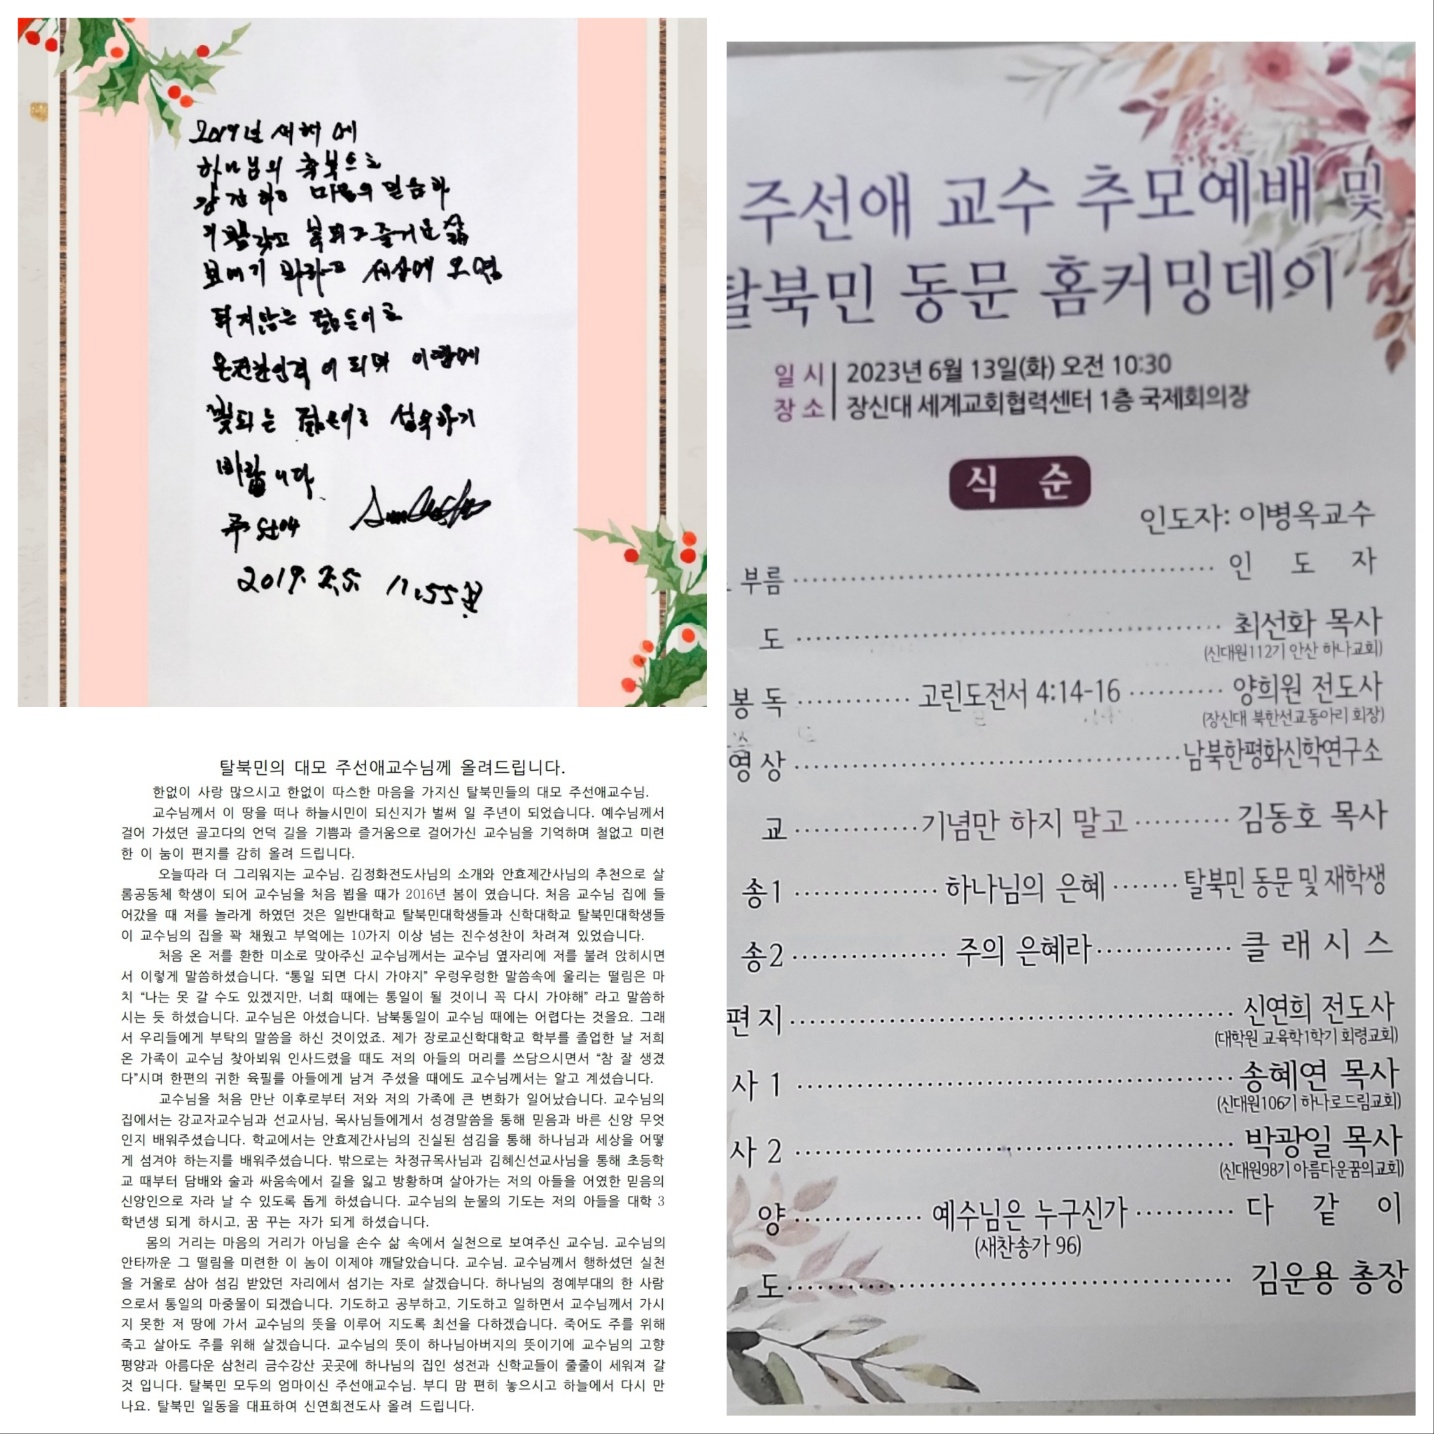 2019년 새해에
하나님의 축복으로
강건하고 마음의 믿음과
기쁨갖고 복되고 즐거운 삶
보내기 바라고 세상에 오염
되지않은 젊은이로
온전한인격이 되며 이땅에
빛되는 젊은이로 성숙하기
바랍니다.
주선애
2019. 2.5. 11.55분
탈북민의 대모 주선애교수님께 올려드립니다.
한없이 사랑 많으시고 한없이 따스한 마음을 가지신 탈북민들의 대모 주선애교수님.
교수님께서 이 땅을 떠나 하늘시민이 되신지가 벌써 일 주년이 되었습니다. 예수님께서
걸어 가셨던 골고다의 언덕 길을 기쁨과 즐거움으로 걸어가신 교수님을 기억하며 철없고 미련
한 이 눔이 편지를 감히 올려 드립니다.
오늘따라 더 그리워지는 교수님. 김정화전도사님의 소개와 안효제간사님의 추천으로 살
롬공동체 학생이 되어 교수님을 처음 뵙을 때가 2016년 봄이 였습니다. 처음 교수님 집에 들
어갔을 때 저를 놀라게 하였던 것은 일반대학교 탈북민대학생들과 신학대학교 탈북민대학생들
이 교수님의 집을 꽉 채웠고 부엌에는 10가지 이상 넘는 진수성찬이 차려져 있었습니다.
처음 온 저를 환한 미소로 맞아주신 교수님께서는 교수님 옆자리에 저를 불려 앉히시면
서 이렇게 말씀하셨습니다. “통일 되면 다시 가야지” 우렁우렁한 말씀속에 울리는 떨림은 마
치 “나는 못 갈 수도 있겠지만, 너희 때에는 통일이 될 것이니 꼭 다시 가야해” 라고 말씀하
시는 듯 하셨습니다. 교수님은 아셨습니다. 남북통일이 교수님 때에는 어렵다는 것을요. 그래
서 우리들에게 부탁의 말씀을 하신 것이었죠. 제가 장로교신학대학교 학부를 졸업한 날 저희
온 가족이 교수님 찾아뵈워 인사드렸을 때도 저의 아들의 머리를 쓰담으시면서 “참 잘 생겼
다”시며 한편의 귀한 육필를 아들에게 남겨 주셨을 때에도 교수님께서는 알고 계셨습니다.
교수님을 처음 만난 이후로부터 저와 저의 가족에 큰 변화가 일어났습니다. 교수님의
집에서는 강교자교수님과 선교사님, 목사님들에게서 성경말씀을 통해 믿음과 바른 신앙 무엇
인지 배워주셨습니다. 학교에서는 안효제간사님의 진실된 섬김을 통해 하나님과 세상을 어떻
게 섬겨야 하는지를 배워주셨습니다. 밖으로는 차정규목사님과 김혜신선교사님을 통해 초등학
교 때부터 담배와 술과 싸움속에서 길을 잃고 방황하며 살아가는 저의 아들을 어엿한 믿음의
신앙인으로 자라 날 수 있도록 돕게 하셨습니다. 교수님의 눈물의 기도는 저의 아들을 대학 3
학년생 되게 하시고, 꿈 꾸는 자가 되게 하셨습니다.
몸의 거리는 마음의 거리가 아님을 손수 삶 속에서 실천으로 보여주신 교수님. 교수님의
안타까운 그 떨림을 미련한 이 놈이 이제야 깨달았습니다. 교수님. 교수님께서 행하셨던 실천
을 거울로 삼아 섬김 받았던 자리에서 섬기는 자로 살겠습니다. 하나님의 정예부대의 한 사람
으로서 통일의 마중물이 되겠습니다. 기도하고 공부하고, 기도하고 일하면서 교수님께서 가시
지 못한 저 땅에 가서 교수님의 뜻을 이루어 지도록 최선을 다하겠습니다. 죽어도 주를 위해
죽고 살아도 주를 위해 살겠습니다. 교수님의 뜻이 하나님아버지의 뜻이기에 교수님의 고향
평양과 아름다운 삼천리 금수강산 곳곳에 하나님의 집인 성전과 신학교들이 줄줄이 세워져 갈
것 입니다. 탈북민 모두의 엄마이신 주선애교수님. 부디 맘 편히 놓으시고 하늘에서 다시 만
나요. 탈북민 일동을 대표하여 신연희전도사 올려 드립니다.
주선애 교수 추모예배 및
탈북민 동문 홈커밍데이
일시 2023년 6월 13일(화) 오전 10:30
장소 장신대 세계교회협력센터 1층 국제회의장
식 순
인도자: 이병옥교수
부름 인 도 자
도 최선화 목사
(신대원112기 안산 하나교회)
봉독 고린도전서 4:14-16 양희원 전도사
(장신대 북한선교동아리 회장)
영상 남북한평화신학연구소
교 기념만 하지 말고 김동호 목사
송1 하나님의 은혜 탈북민 동문 및 재학생
송2 주의 은혜라 클래시스
편지 신연희 전도사
(대학원 교육학1학기 회령교회)
사 1 송혜연 목사
(신대원106기 하나로드림교회)
사 2 박광일 목사
(신대원98기 아름다운꿈의교회)
양 예수님은 누구신가 다 같 이
(새찬송가 96)
도 김운용 총장